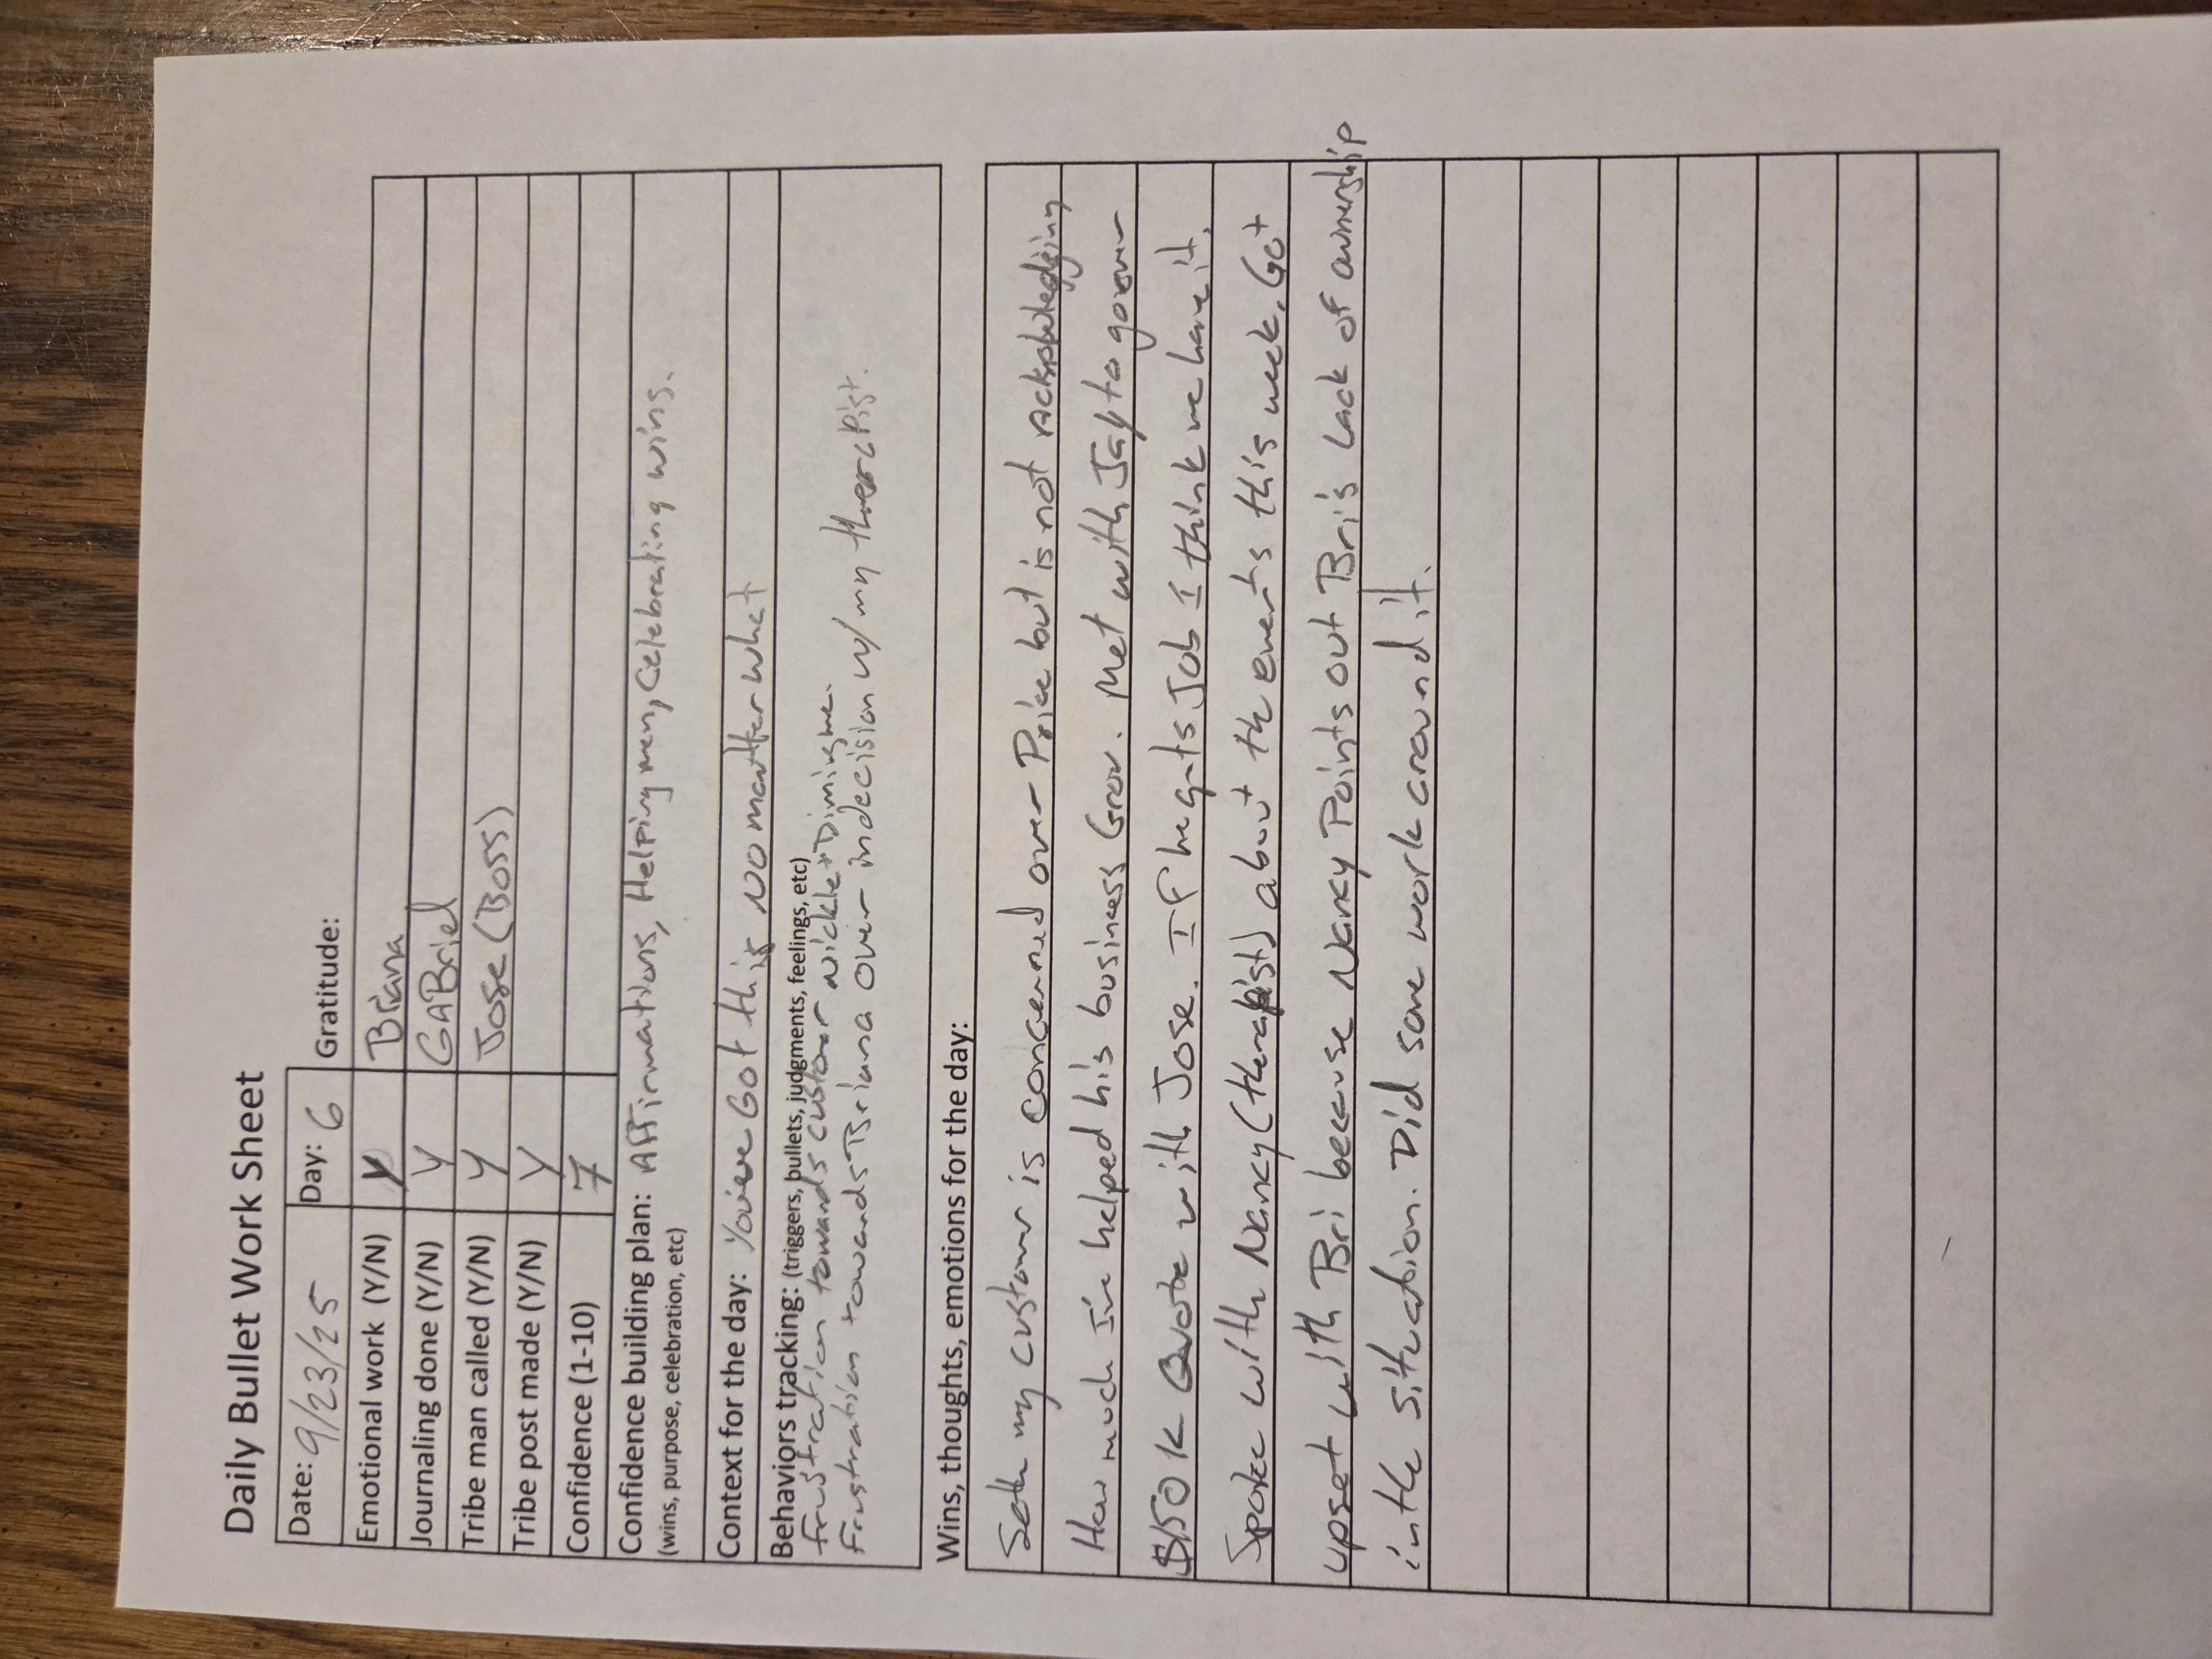 Daily Bullet Work Sheet
Date: 9/23/25 Day: 6 Gratitude:
Emotional work (Y/N) Y Briana
Journaling done (Y/N) Y GABriel
Tribe man called (Y/N) Y Jose (Boss)
Tribe post made (Y/N) Y
Confidence (1-10) 7
Confidence building plan: Affirmations, Helping men, Celebrating wins.
(wins, purpose, celebration, etc)
Context for the day: You've Got this no matter what
Behaviors tracking: (triggers, bullets, judgments, feelings, etc)
frustration towards customer nickle + Diming me.
Frustration towards Briana over indecision w/ my therapist.
Wins, thoughts, emotions for the day:
Seth my customer is concerned over Price but is not acknowledging
How much I've helped his business Grow. Met with Jay to go over
$150K Quote with Jose. IF he gets Job I think we have it.
Spoke with Nancy (therapist) about the events this week. Got
upset with Bri because Nancy Points out Bri's Lack of ownership
in the situation. Did some work around it.